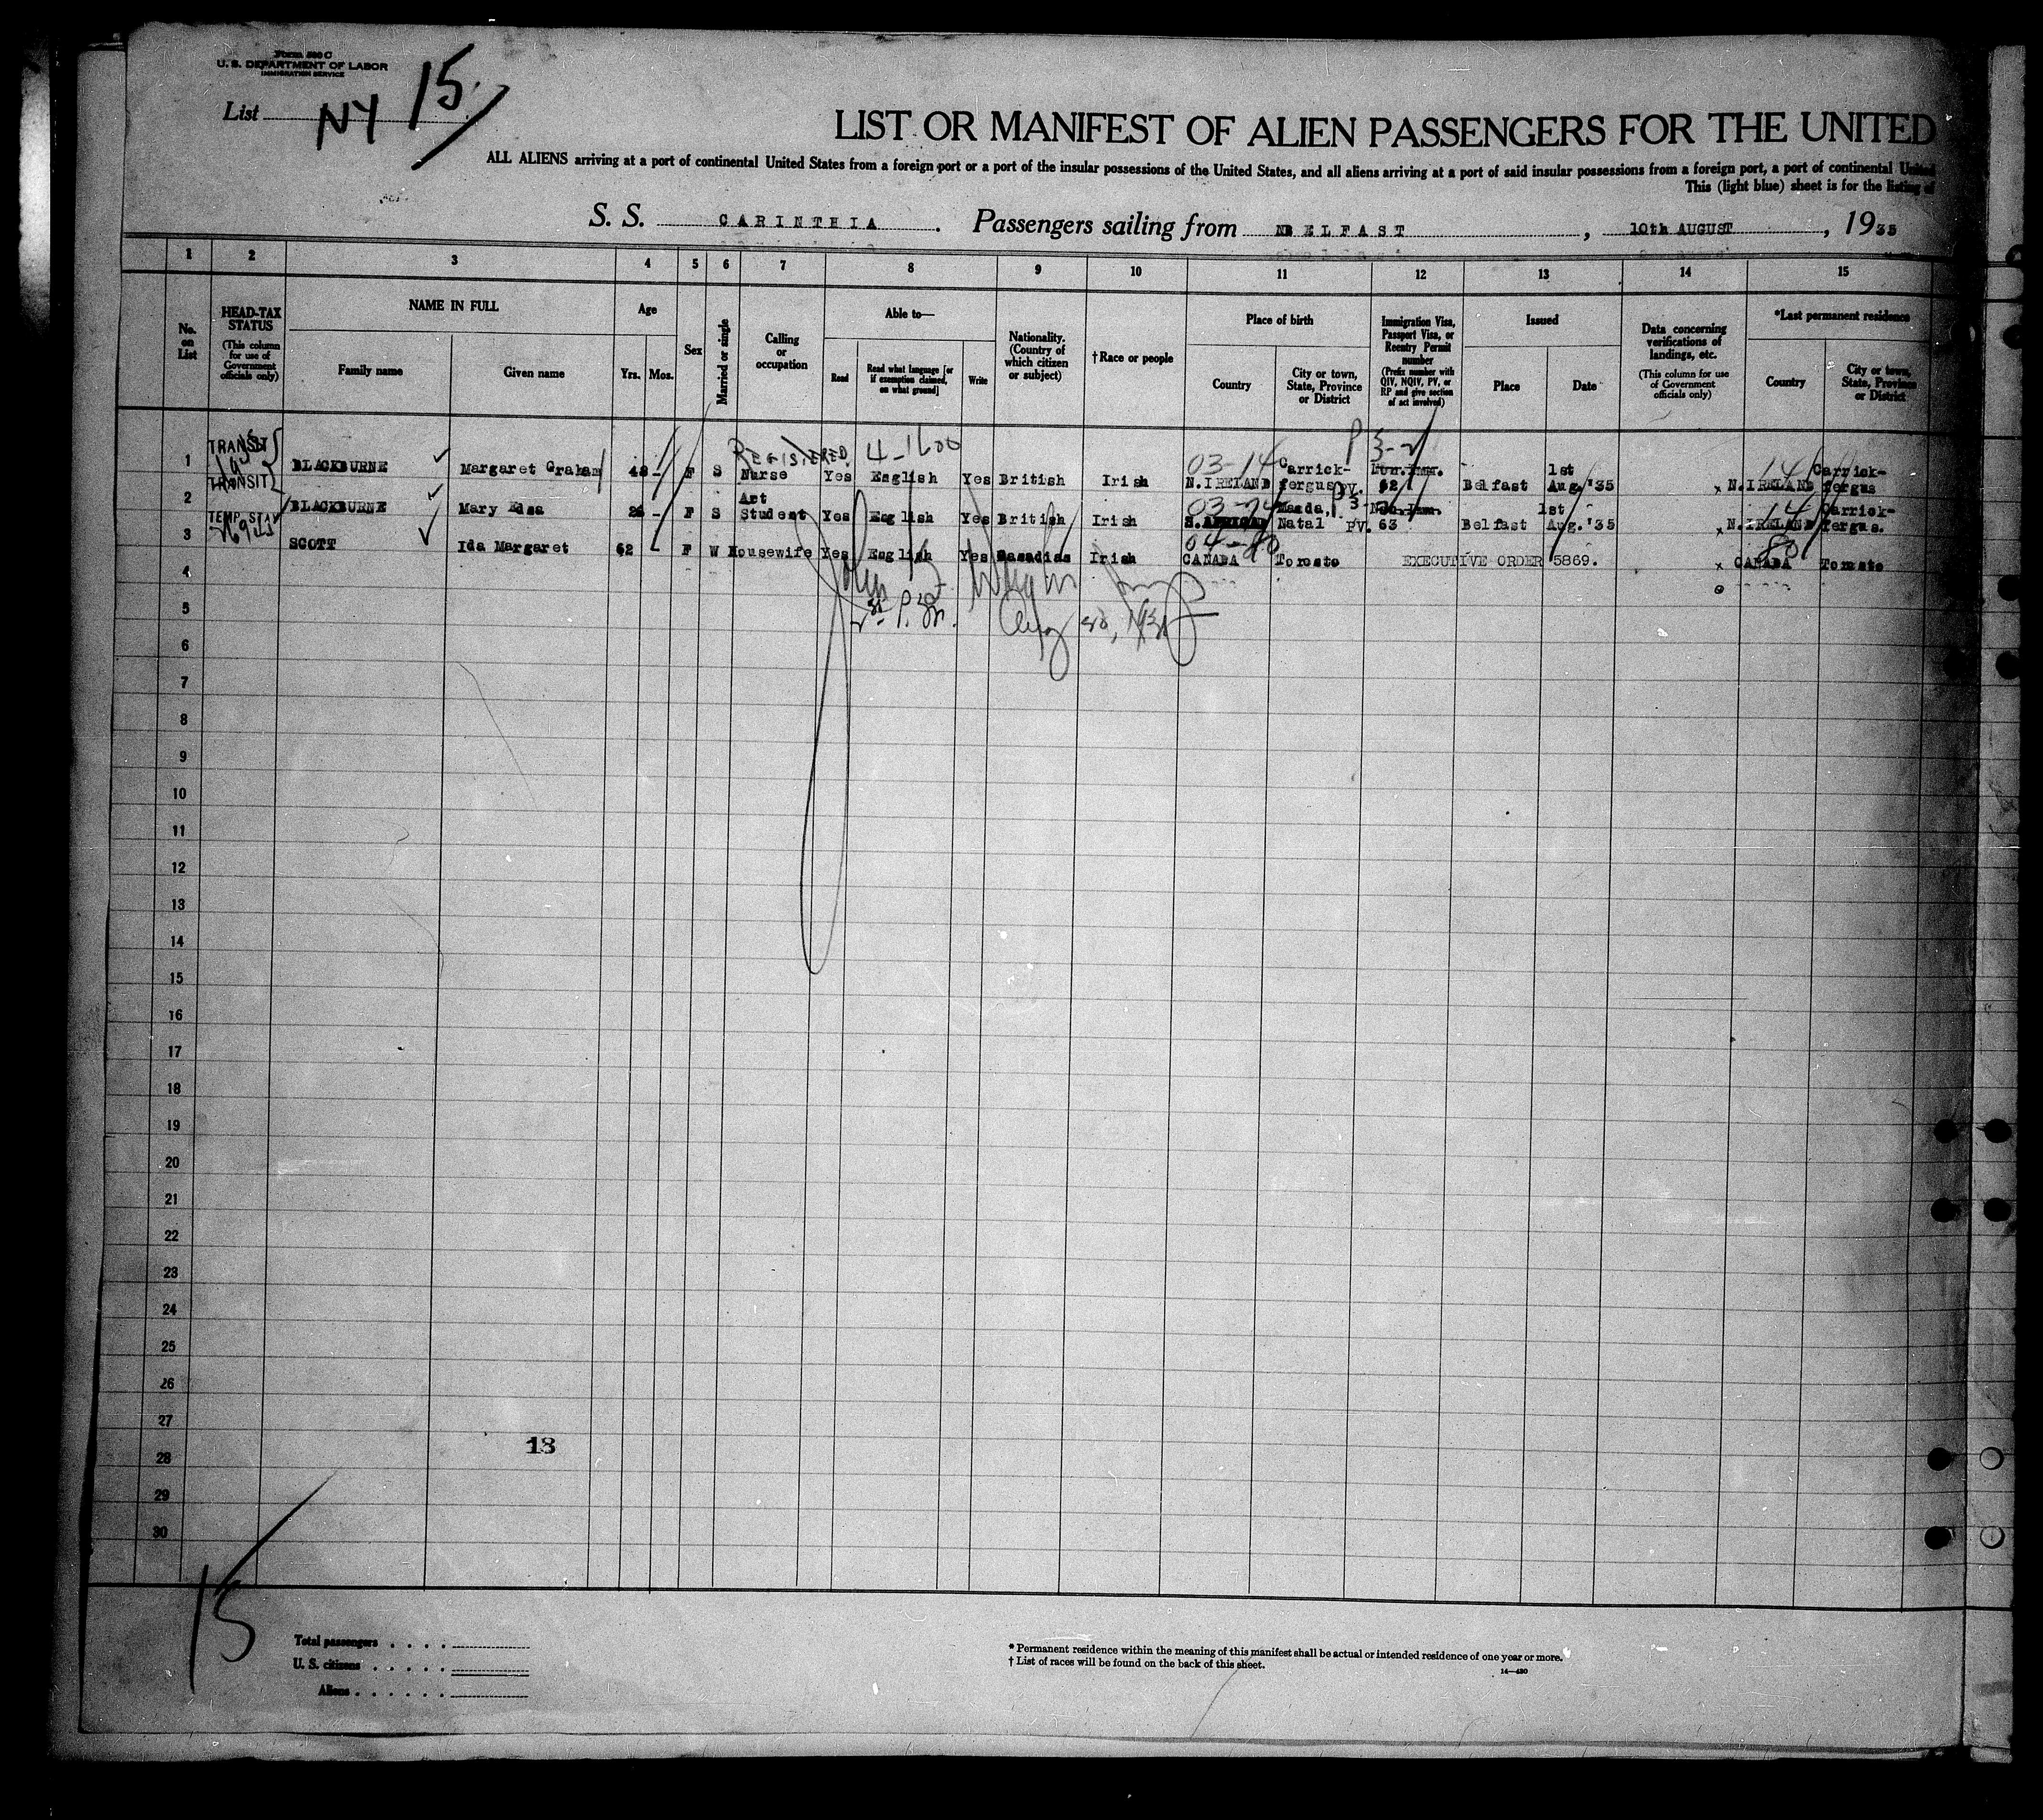 Form 500 C
U. S. DEPARTMENT OF LABOR
IMMIGRATION SERVICE
List NY 15
LIST OR MANIFEST OF ALIEN PASSENGERS FOR THE UNITED
ALL ALIENS arriving at a port of continental United States from a foreign port or a port of the insular possessions of the United States, and all aliens arriving at a port of said insular possessions from a foreign port, a port of continental United
This (light blue) sheet is for the listing of
S. S. CARINTHIA. Passengers sailing from BELFAST, 10th AUGUST, 1935
1 2 3 4 5 6 7 8 9 10 11 12 13 14 15
No. on List
HEAD-TAX STATUS
(This column for use of Government officials only)
NAME IN FULL
Family name
Given name
Age
Yrs. Mos.
Sex
Married or single
Calling or occupation
Able to—
Read
Read what language [or if exemption claimed, on what ground]
Write
Nationality. (Country of which citizen or subject)
†Race or people
Place of birth
Country
City or town, State, Province or District
Immigration Visa, Passport Visa, or Reentry Permit number
(Prefix number with QIV, NQIV, PV, or RP and give section of act involved)
Issued
Place
Date
Data concerning verifications of landings, etc.
(This column for use of Government officials only)
*Last permanent residence
Country
City or town, State, Province or District
TRANSIT REGISTERED 4-1600 P 3-2
03-14 Carrick- 1st 14 Carrick-
1 BLACKBURNE Margaret Graham 48 - F S Nurse Yes English Yes British Irish N.IRELAND fergus PV. 62 Belfast Aug.'35 x N.IRELAND fergus
TRANSIT Art 1st 14 Carrick-
2 BLACKBURNE Mary Edna 26 - F S Student Yes English Yes British Irish S.AFRICA Natal PV. 63 Belfast Aug.'35 x N.IRELAND fergus.
TEMP. STAY 04-80 80
3 SCOTT Ida Margaret 62 - F W Housewife Yes English Yes Canadian Irish CANADA Toronto EXECUTIVE ORDER 5869. x CANADA Toronto
4
5
6
7
8
9
10
11
12
13
14
15
16
17
18
19
20
21
22
23
24
25
26
27
18
28
29
30
15
Total passengers
U. S. citizens
Aliens
* Permanent residence within the meaning of this manifest shall be actual or intended residence of one year or more.
† List of races will be found on the back of this sheet.
14—430